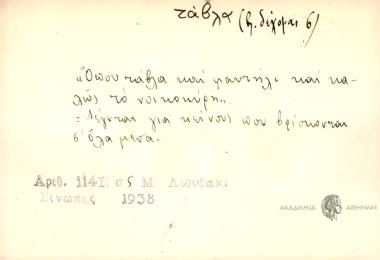 τάβλα (βλ. δέχομαι 6)
"Όπου τάβλα και μαντήλι και κα-
λώς το νοικοκύρη„
= Λέγεται για κείνους που βρίσκονται
σ' όλα μεσα.
Αριθ. 1141 σ 5 Μ. Λιουδακι
Σινώπης 1938
ΑΚΑΔΗΜΙΑ ΑΘΗΝΩΝ